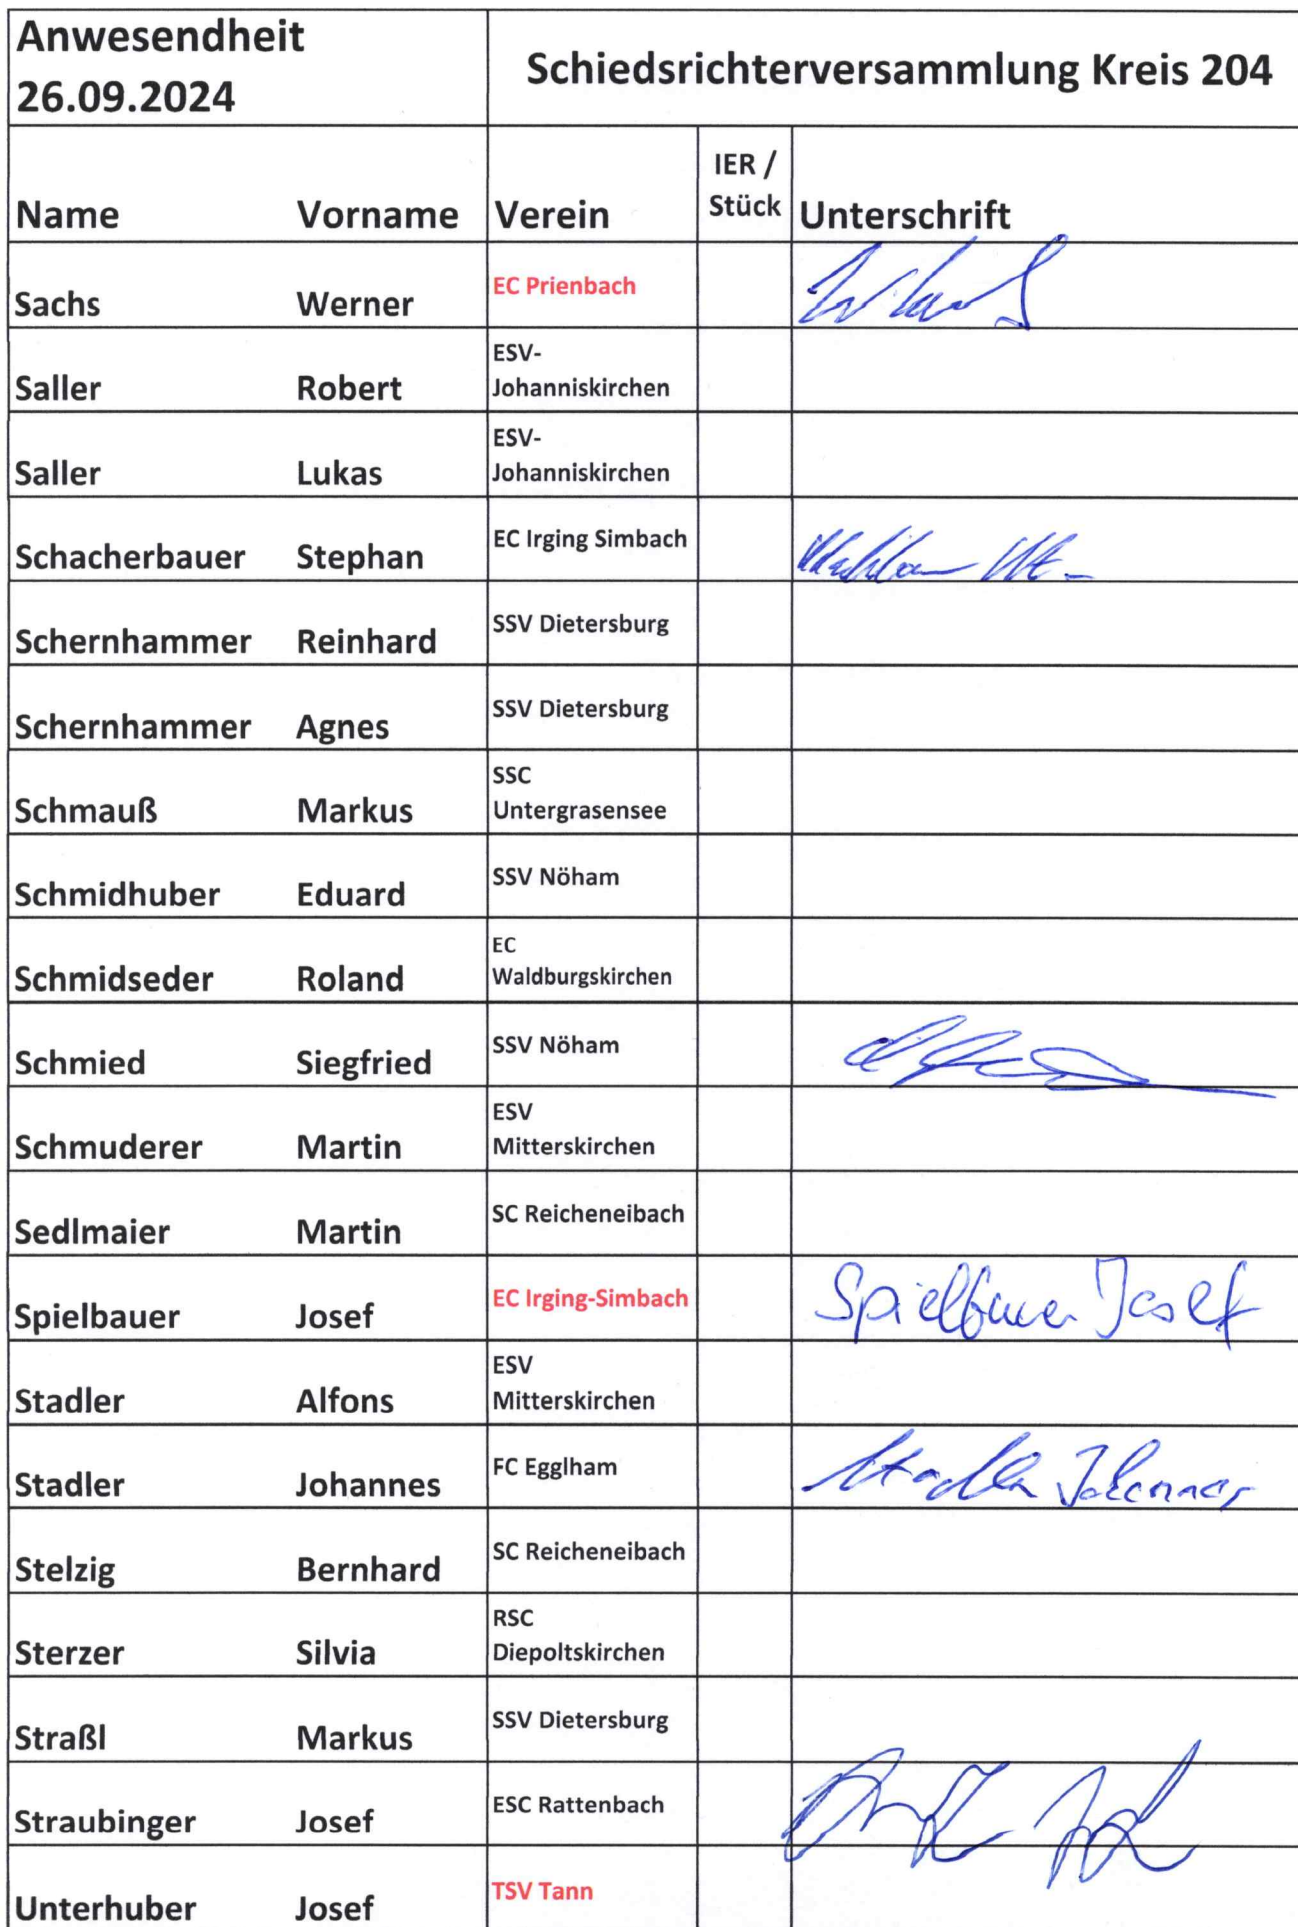 Anwesendheit
26.09.2024
Schiedsrichterversammlung Kreis 204
Name Vorname Verein IER / Stück Unterschrift
Sachs Werner EC Prienbach
Saller Robert ESV-
Johanniskirchen
Saller Lukas ESV-
Johanniskirchen
Schacherbauer Stephan EC Irging Simbach
Schernhammer Reinhard SSV Dietersburg
Schernhammer Agnes SSV Dietersburg
Schmauß Markus SSC
Untergrasensee
Schmidhuber Eduard SSV Nöham
Schmidseder Roland EC
Waldburgskirchen
Schmied Siegfried SSV Nöham
Schmuderer Martin ESV
Mitterskirchen
Sedlmaier Martin SC Reicheneibach
Spielbauer Josef EC Irging-Simbach Spielbauer Josef
Stadler Alfons ESV
Mitterskirchen
Stadler Johannes FC Egglham Stadler Johannes
Stelzig Bernhard SC Reicheneibach
Sterzer Silvia RSC
Diepoltskirchen
Straßl Markus SSV Dietersburg
Straubinger Josef ESC Rattenbach
Unterhuber Josef TSV Tann